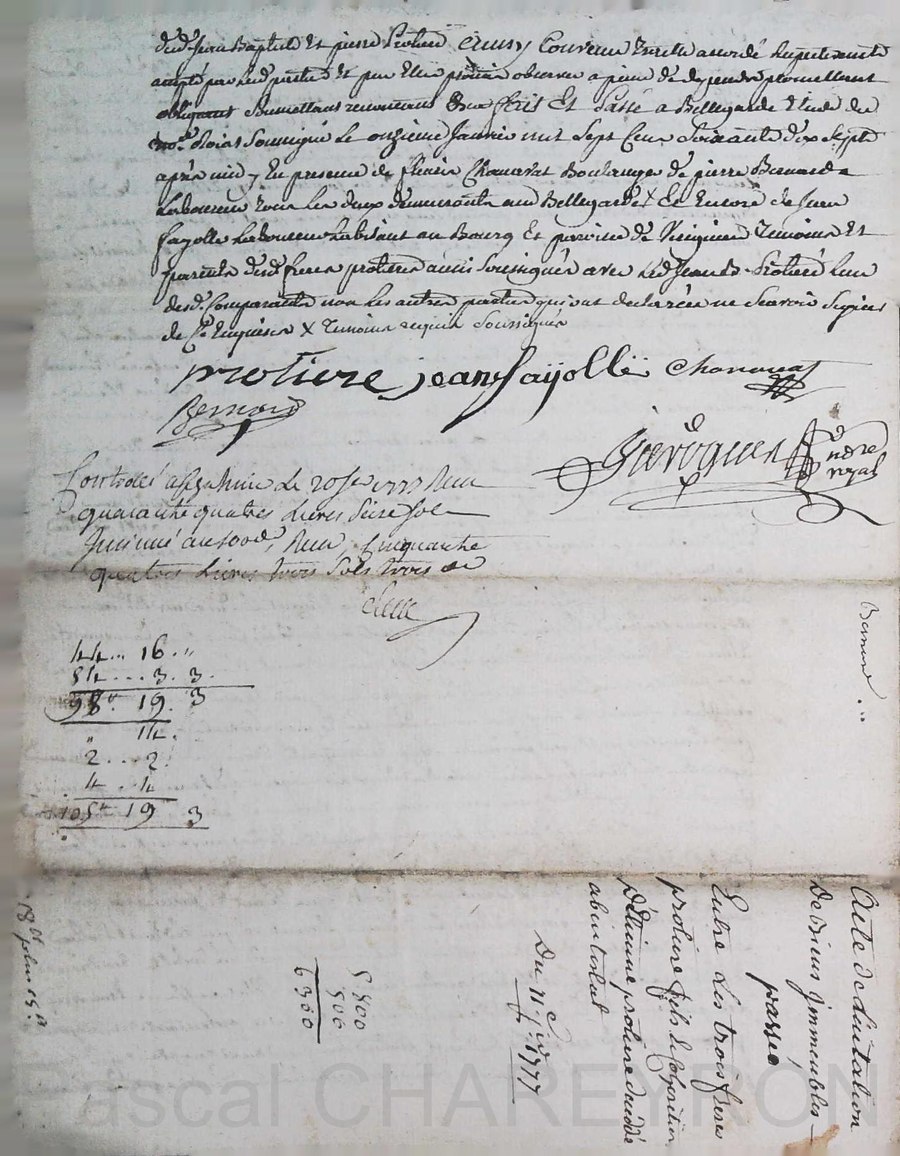 desd. Jean Baptiste Et pierre Protiere Ainsy Convenu accordé Respectivement
accepté par Lesd parties Et par Elles promis observer a peine de dependre promettant
obligeant Soumettant renonceant Fait Et Passé a Bellegarde Etude du
no.re Roial Soussigné Le onzieme Janvier mil Sept Cens Soixante dix Sept
aprés midy En presence de Chanavat Boulanger de pierre Bernard
Laboureur tous Les deux demeurants aud Bellegarde X Et Encore de Jean
fayolle Laboureur habitant au Bourg Et parroisse de Virigneu Temoins Et
parents desd freres protiere aussi Soussignés avec Led Jean B. Protiere L'un
desd. Comparants non Les autres parties qui ont declarées ne Scavoir Signer
de Ce Enquises X Temoins requis Soussignés
protiere jean fayolle Chanavat
Bernard
nore
royal
Controlé a le 20 Janv 1777 Reçu
quarante quatre Livres Seize Sols
Insinué au 100e, Reçu, Cinquante
quatre Livres trois Sols trois d
44 .. 16 . "
54 ... 3 . 3 .
98 " 19 . 3
" 14 .
2 ... 2
4 . 4
105 " 19 3
Acte de Licitation
De Biens Immeubles
passée
Entre Les trois freres
protiere fils & Cohéritiers
D'Etienne protiere décédé
abintestat
Du 11e Jer. 1777
5800
500
6300